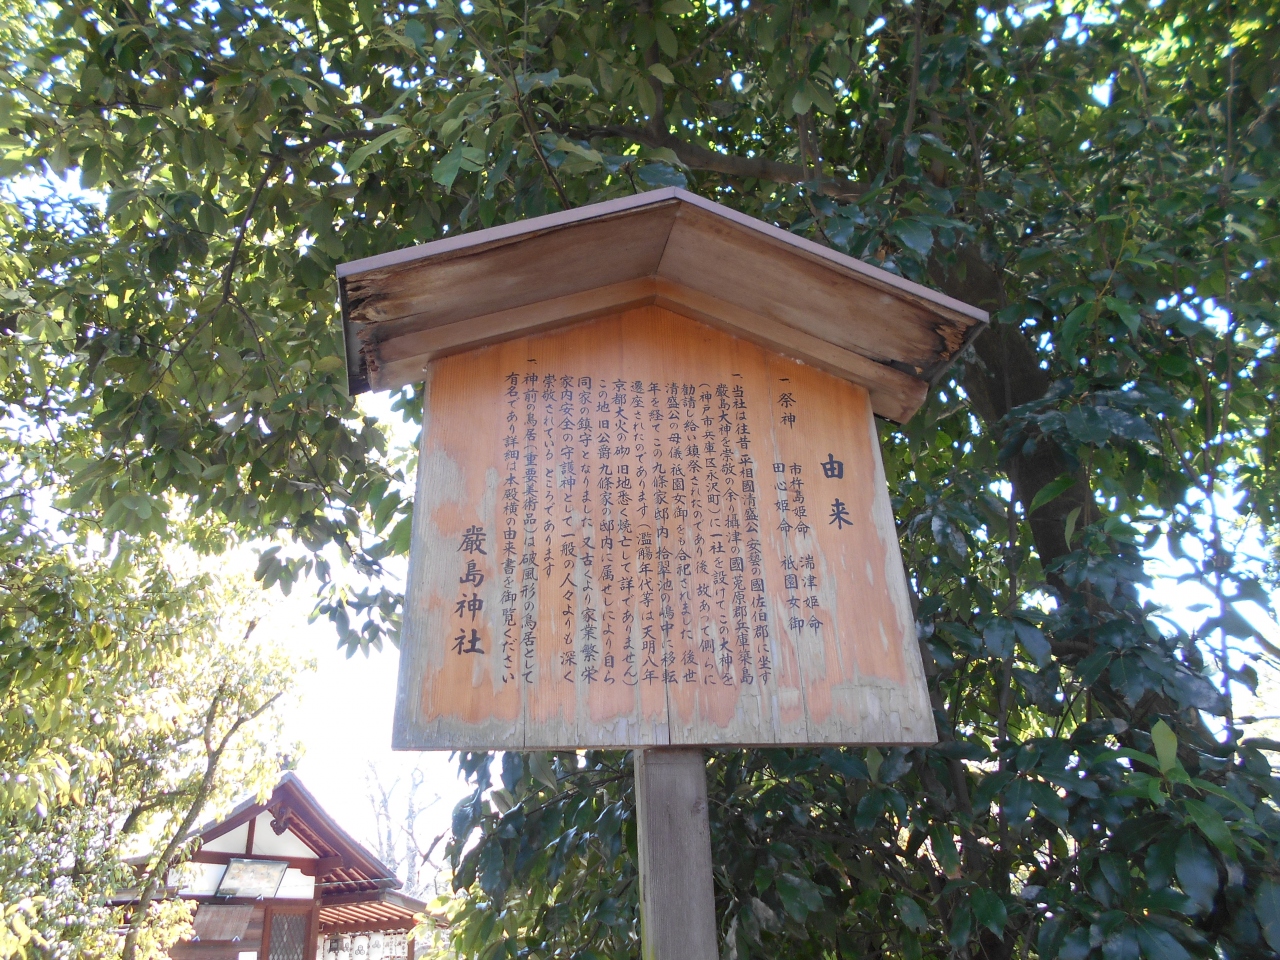 由来
一 祭神 市杵島姫命 湍津姫命
田心姫命 祇園女御
一 当社は往昔平相國清盛公安藝の國佐伯郡に坐す
厳島大神を崇敬の余り攝津の國菟原郡兵庫築島
(神戸市兵庫区永沢町)に一社を設けてこの大神を
勧請し給い鎮祭されたのであり後 故あって側らに
清盛公の母儀祇園女御をも合祀されました 後世
年を経てこの九條家邸内 拾翠池の嶋中に移転
遷座されたのであります(濫觴年代等は天明八年
京都大火の砌 旧地悉く焼亡して詳でありません)
この地 旧公爵九條家の邸内に属せしにより自ら
同家の鎮守となりました 又古くより家業繁栄
家内安全の守護神として一般の人々よりも深く
崇敬されているところであります
一 神前の鳥居(重要美術品)は破風形の鳥居として
有名であり詳細は本殿横の由来書を御覧ください
嚴島神社